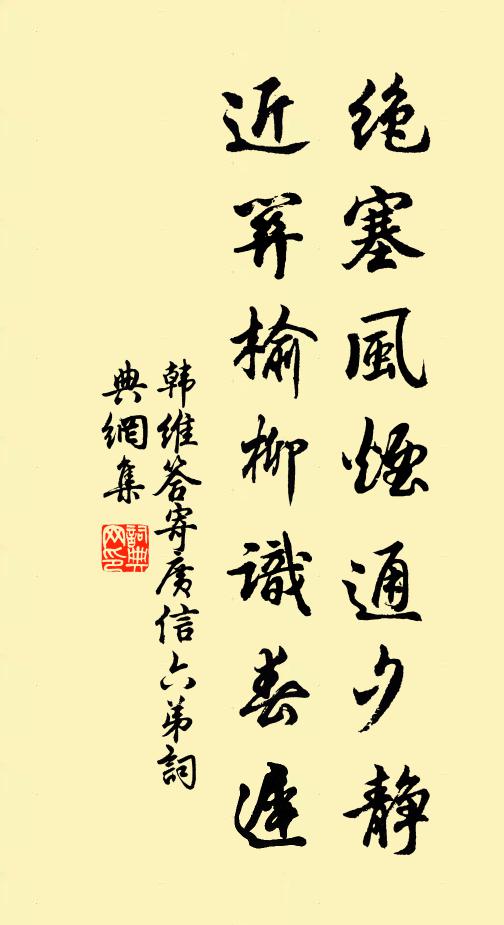 絶塞風煙通夕静
近關榆柳識春遲
韩维答寄廣信六弟詞
典網集
詞典
网印